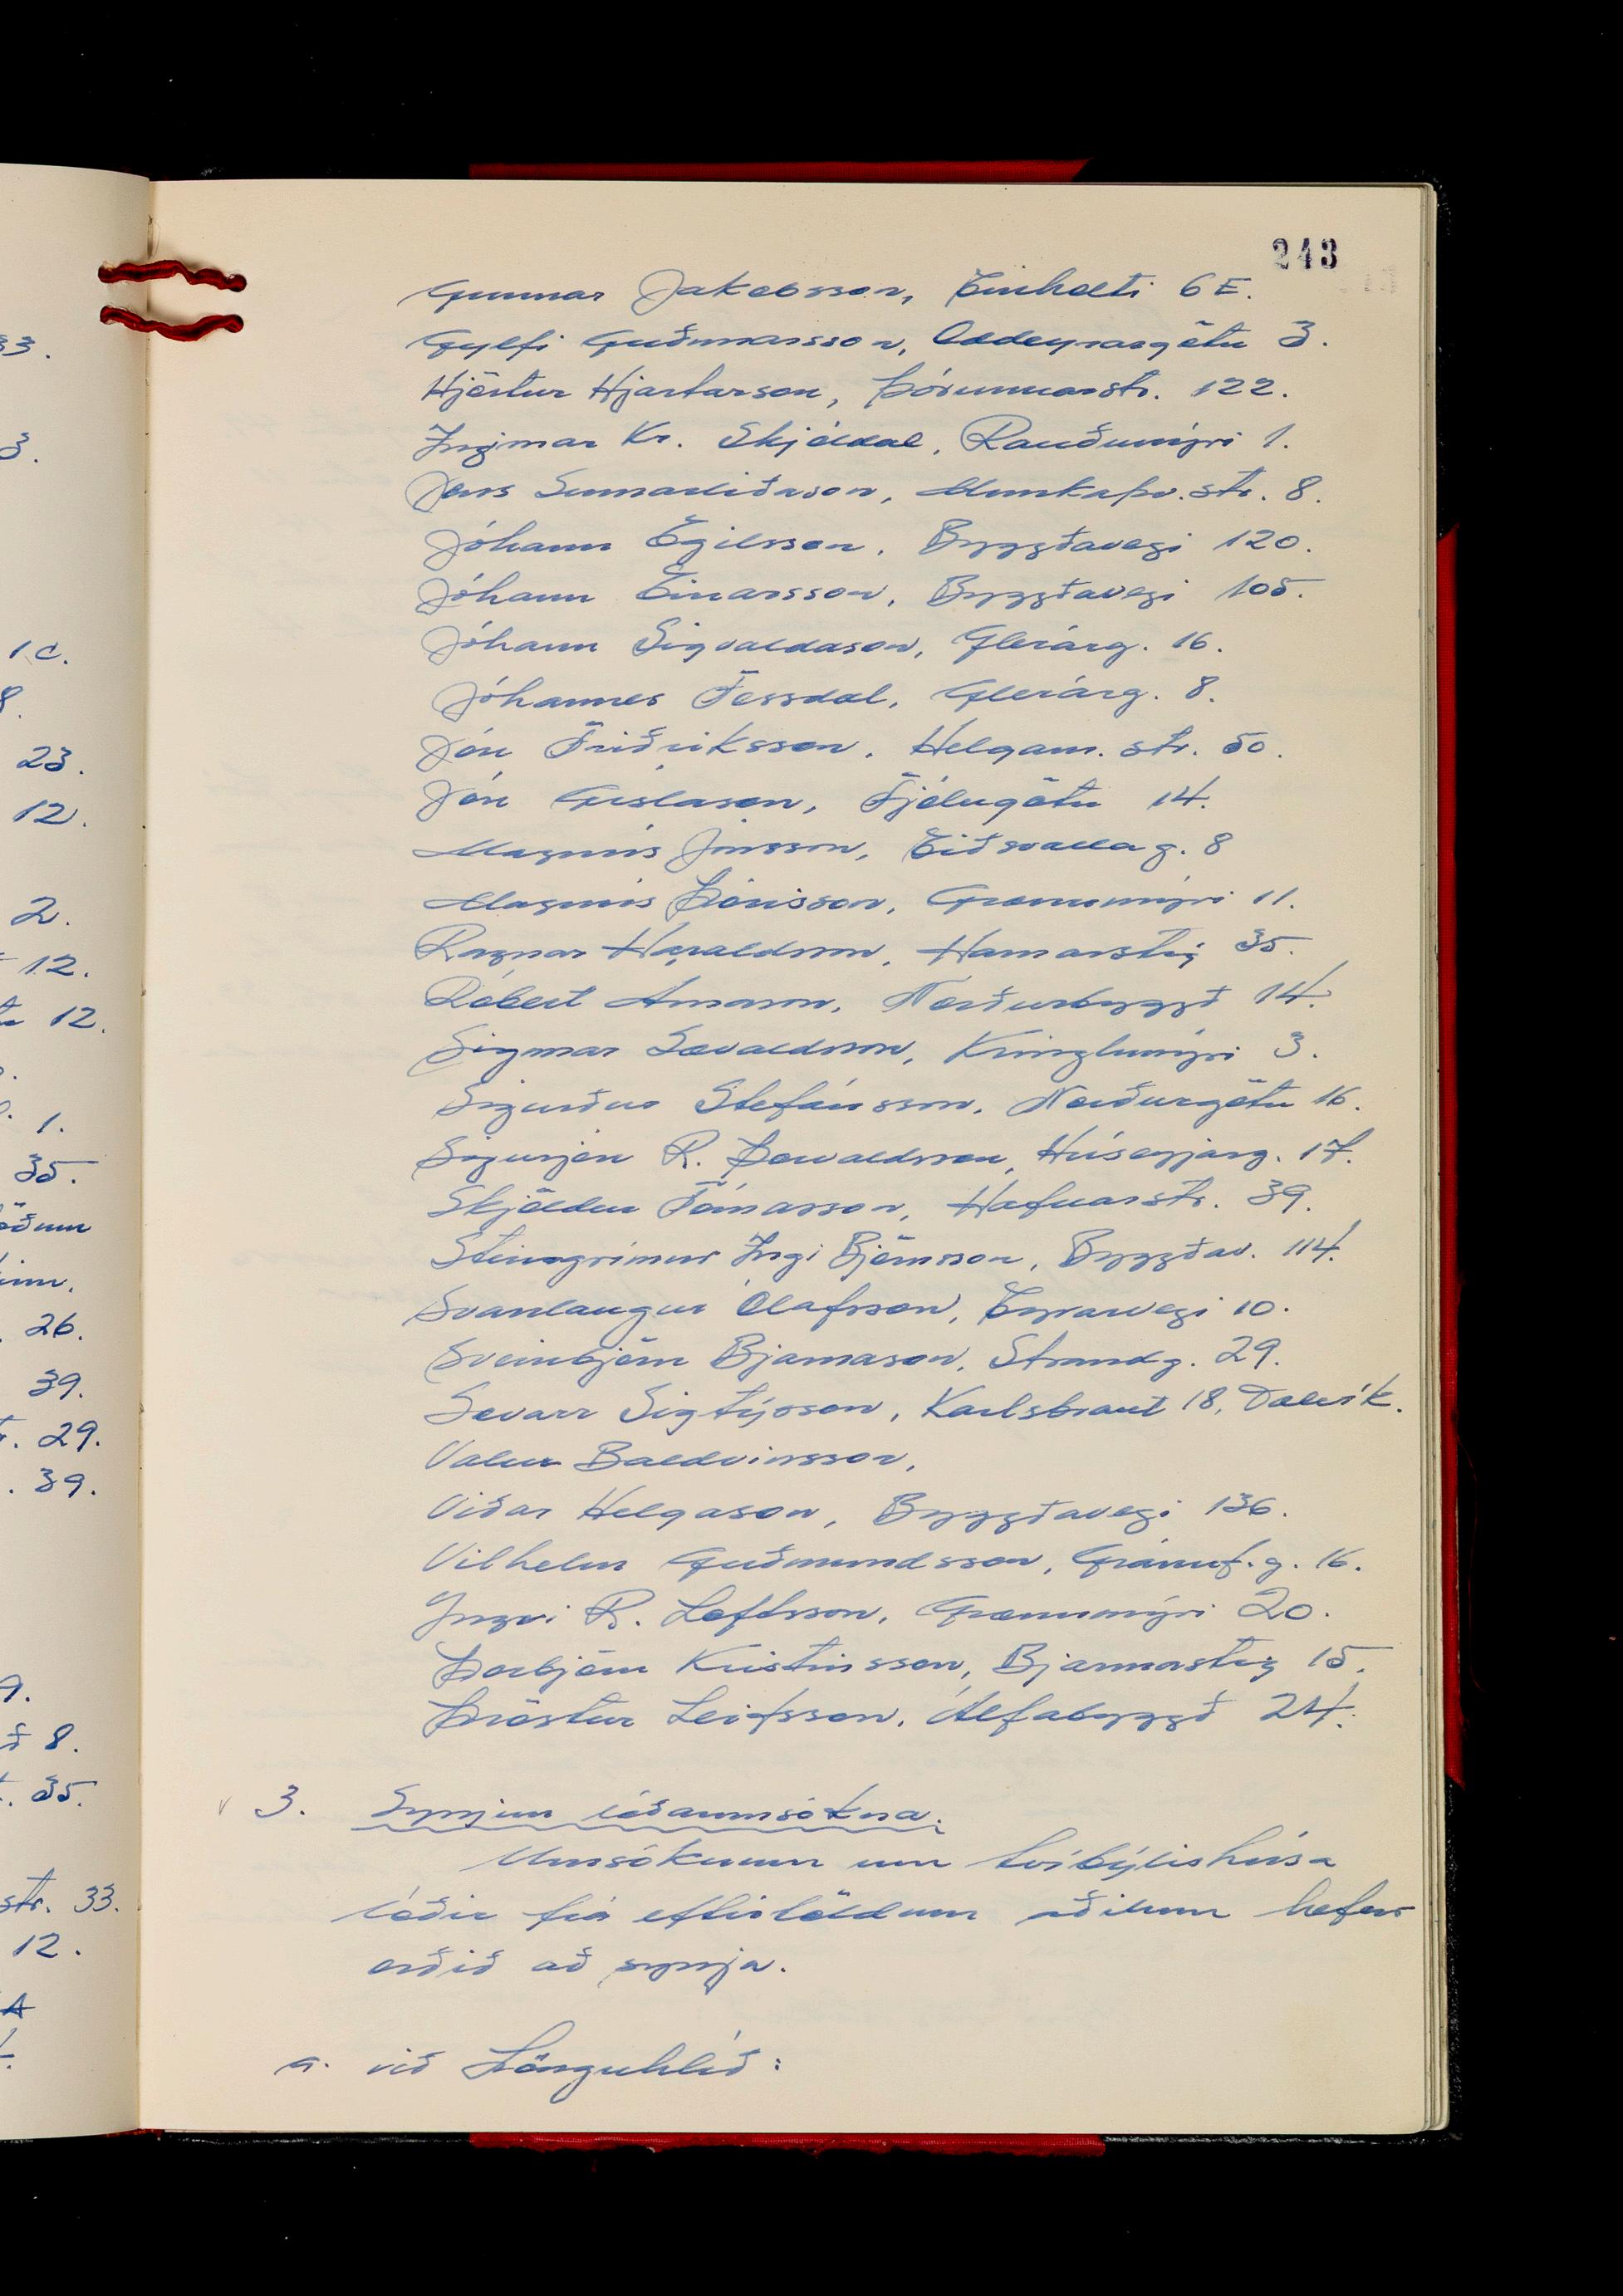 243
Gunnar Jakobsson, Einholti 6E.
Gylfi Guðmarsson, Oddeyrargötu 3.
Hjörtur Hjartarson, Þórunnarstr. 122.
Ingimar Kr. Skjóldal, Rauðumýri 1.
Jens Sumarliðason, Munkaþv.str. 8.
Jóhann Egilsson, Byggðavegi 120.
Jóhann Einarsson, Byggðavegi 105.
Jóhann Sigvaldason, Glerárg. 16.
Jóhannes Fossdal, Glerárg. 8.
Jón Friðriksson, Helgam. str. 50.
Jón Gíslason, Fjólugötu 14.
Magnús Jónsson, Eiðsvallag. 8
Magnús Þórisson, Grænumýri 11.
Ragnar Haraldsson, Hamarstíg 35.
Róbert Árnason, Norðurbyggð 14.
Sigmar Sævaldsson, Kringlumýri 3.
Sigurður Stefánsson, Norðurgötu 16.
Sigurjón R. Þorvaldsson, Höseyjarg. 17.
Skjöldur Tómasson, Hafnarstr. 39.
Steingrímur Ingi Björnsson, Byggðav. 114.
Svanlaugur Ólafsson, Eyrarvegi 10.
Sveinbjörn Bjarnason, Strandg. 29.
Sævarr Sigtýsson, Karlsbraut 18, Dalvík.
Valur Baldvinsson,
Viðar Helgason, Byggðavegi 136.
Vilhelm Guðmundsson, Gránuf.g. 16.
Yngvi R. Loftsson, Grænumýri 20.
Þorbjörn Kristinsson, Bjarmastíg 15.
Þröstur Leifsson, Álfabyggð 24.
3. Synjun lóðaumsókna.
Umsóknum um tvíbýlishúsa
lóðir frá eftirtöldum aðilum hefur
orðið að synja.
a. við Lönguhlíð:
33.
3.
1c.
8.
23.
12.
2.
12.
12.
1.
35.
26.
39.
29.
39.
9.
8.
35.
str. 33.
12.